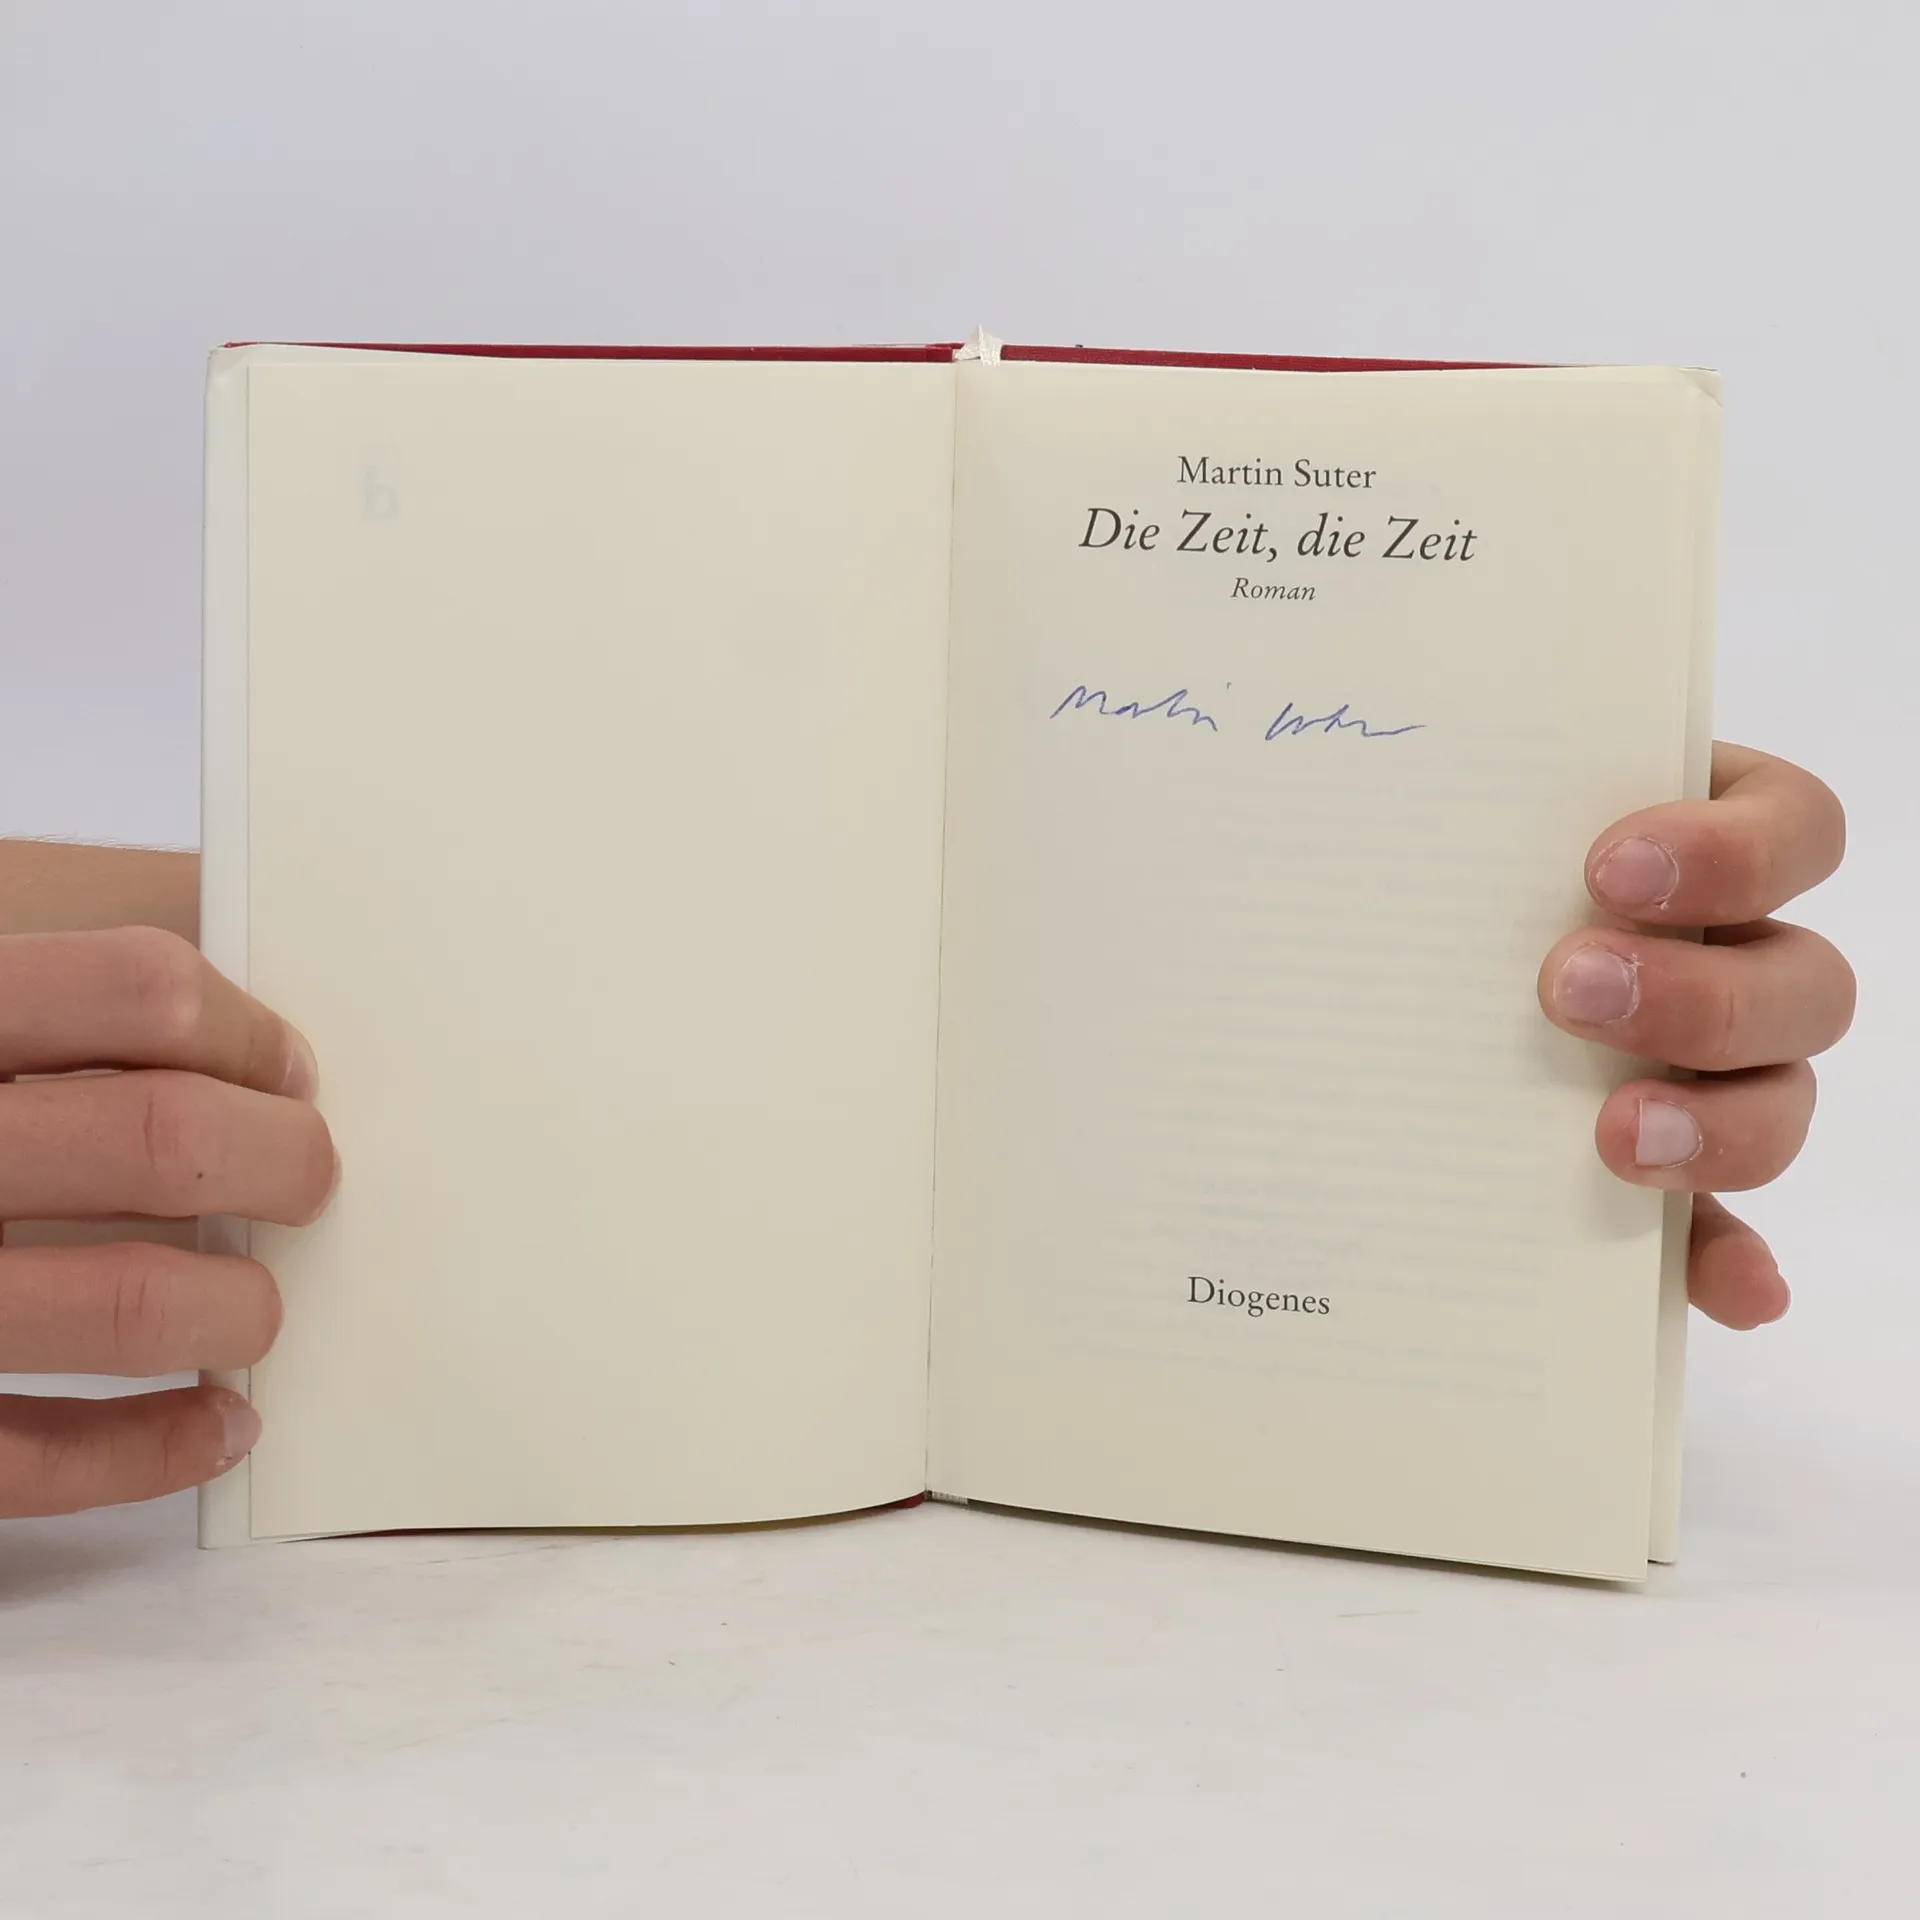 Martin Suter
Die Zeit, die Zeit
Roman
Martin Suter
Diogenes